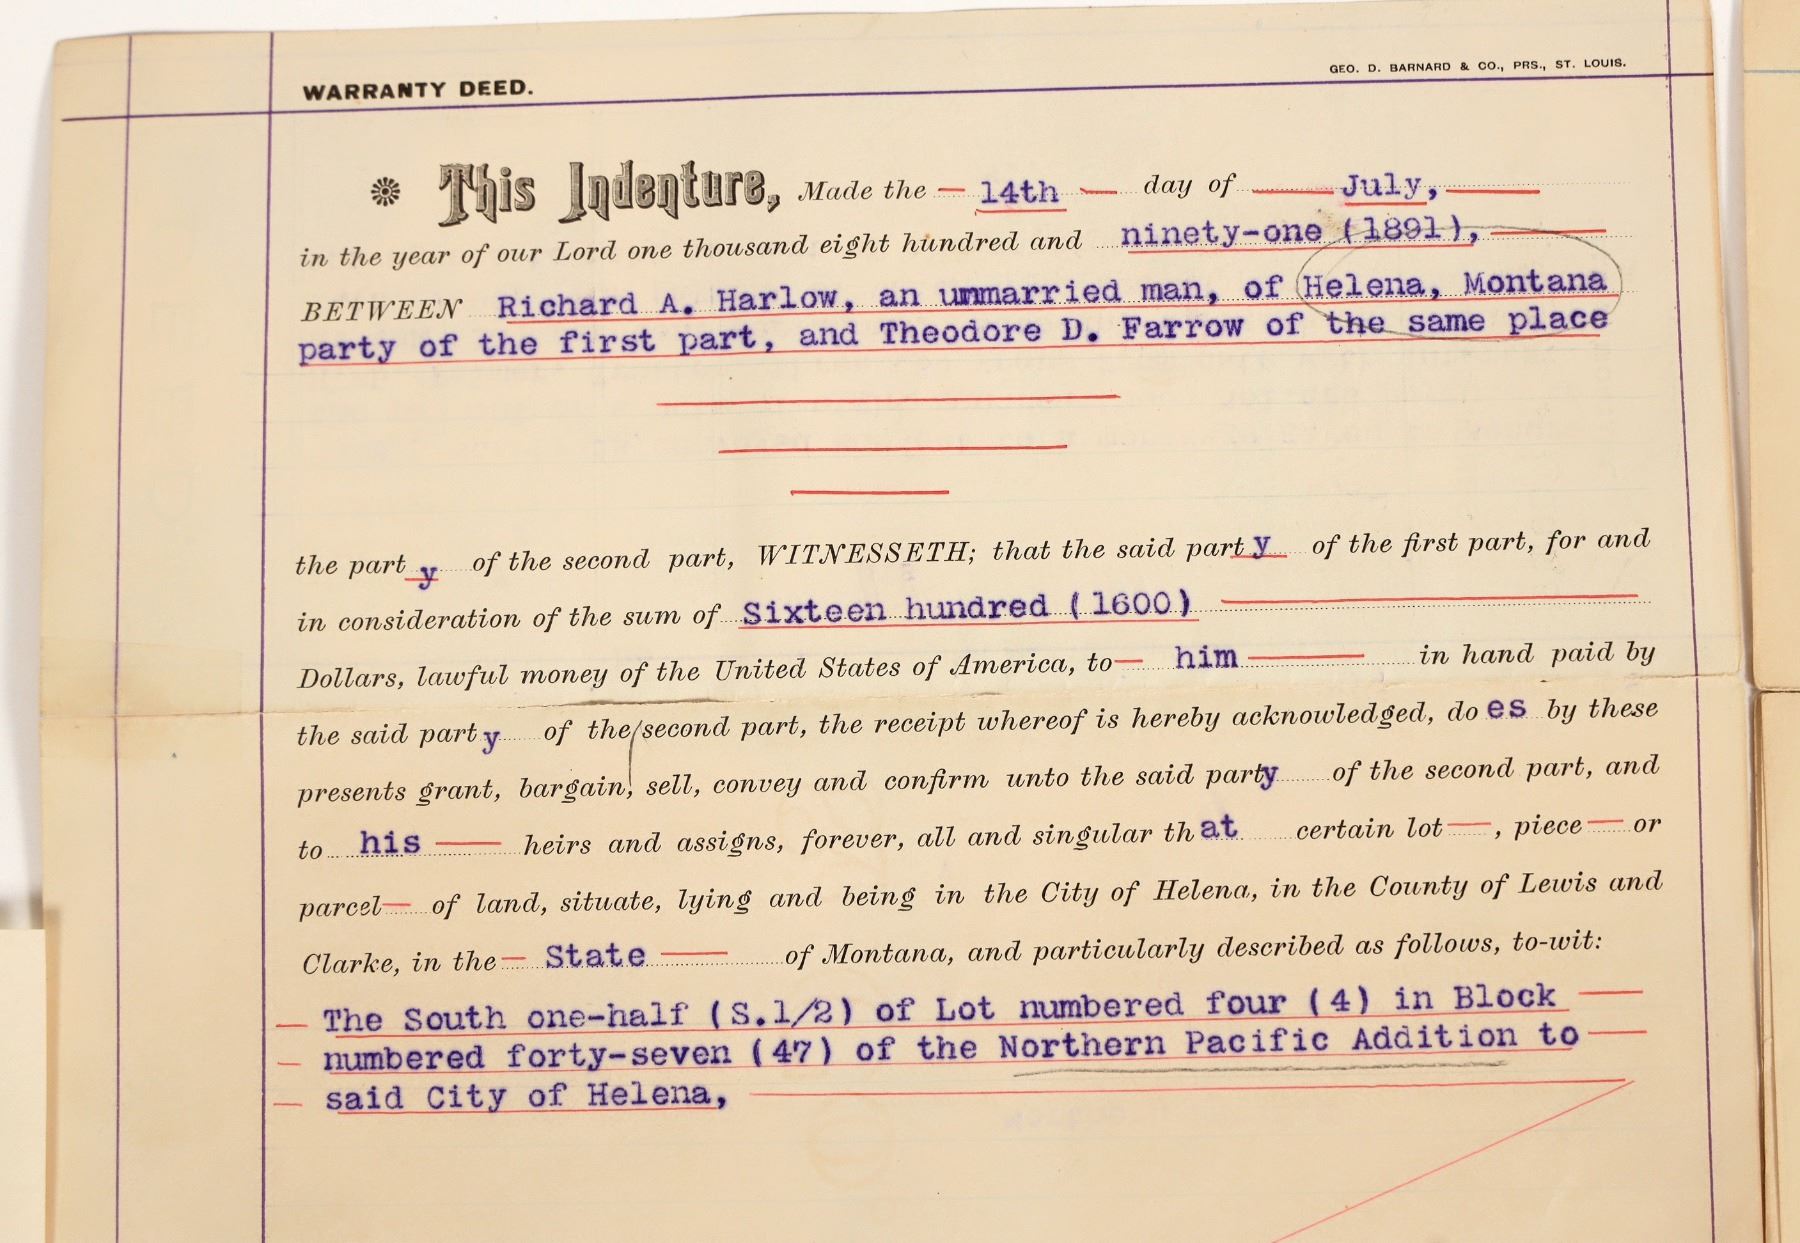 WARRANTY DEED.
GEO. D. BARNARD & CO., PRS., ST. LOUIS.
This Indenture, Made the 14th day of July,
in the year of our Lord one thousand eight hundred and ninety-one (1891),
BETWEEN Richard A. Harlow, an unmarried man, of Helena, Montana
party of the first part, and Theodore D. Farrow of the same place
the party of the second part, WITNESSETH; that the said party of the first part, for and
in consideration of the sum of Sixteen hundred (1600)
Dollars, lawful money of the United States of America, to him in hand paid by
the said party of the second part, the receipt whereof is hereby acknowledged, does by these
presents grant, bargain, sell, convey and confirm unto the said party of the second part, and
to his heirs and assigns, forever, all and singular that certain lot, piece or
parcel of land, situate, lying and being in the City of Helena, in the County of Lewis and
Clarke, in the State of Montana, and particularly described as follows, to-wit:
The South one-half (S.1/2) of Lot numbered four (4) in Block
numbered forty-seven (47) of the Northern Pacific Addition to
said City of Helena,